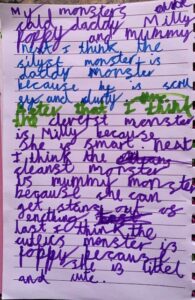 My monsters are
daddy Milly
Poppy and mummy
next I think the
silyst monster is
daddy monster
because he is
and
I think
the cleverest monster
is Milly because
she is smart. next
I think the
cleanst monster
is mummy monster
because she can
get stans out of
enything
last I think the
cutiecs monster is
Poppy because
she is
and cute.